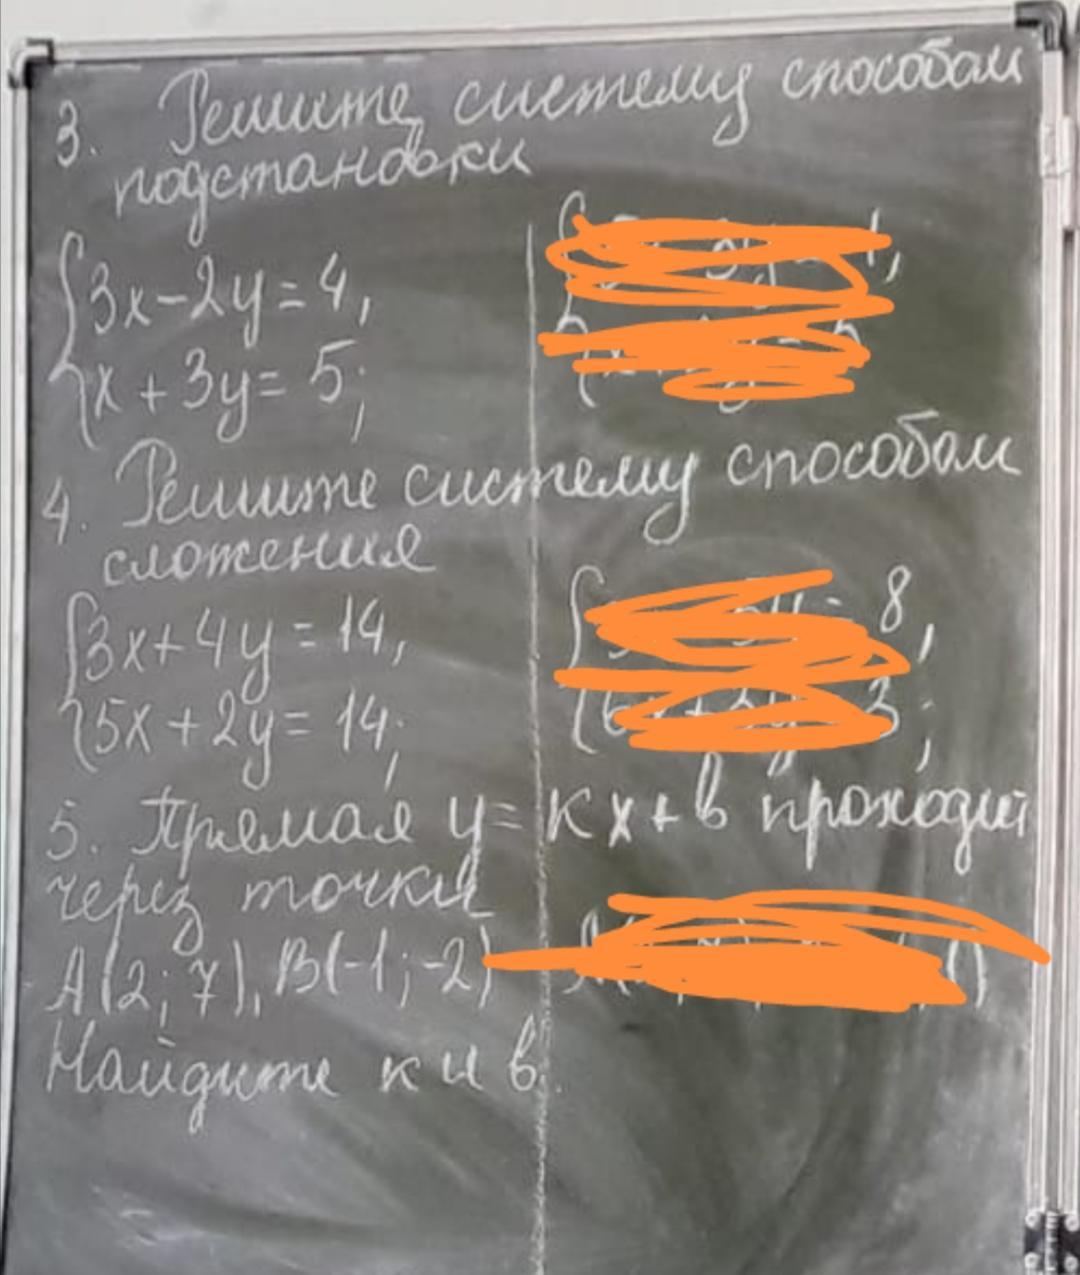 3. Решите систему способом
подстановки
{3x-2y=4,
{x+3y=5;
4. Решите систему способом
сложения
{3x+4y=14,
{5x+2y=14;
8,
3;
5. Прямая y=кx+в проходит
через точки
A(2;7), B(-1;-2)
Найдите к и в.